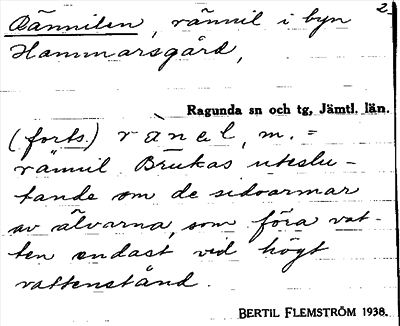 2
Rännilen, rännil i byn
Hammarsgård,
Ragunda sn och tg, Jämtl. län.
(forts.) rànel, m. =
rännil. Brukas uteslu-
tande om de sidoarmar
av älvarna, som föra vat-
ten endast vid högt
vattenstånd.
BERTIL FLEMSTRÖM 1938.